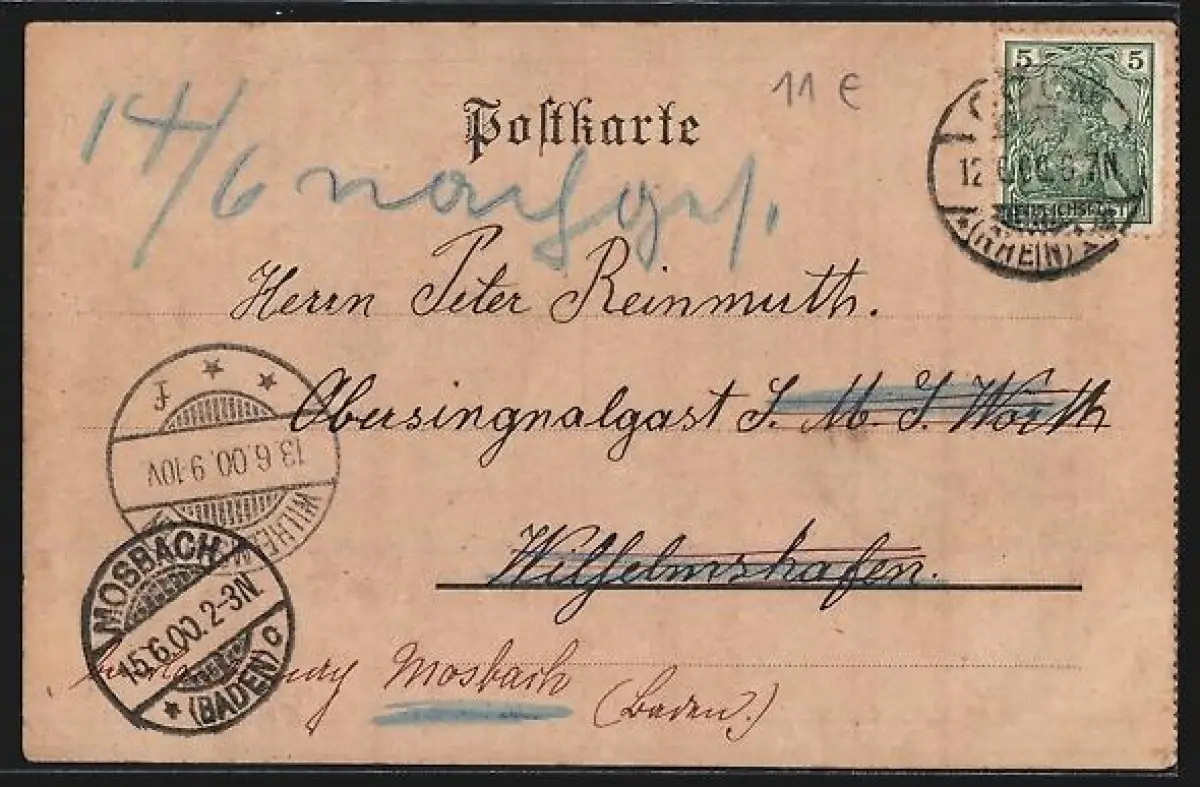 5 5
11 €
Postkarte
14/6 nachges.
12 6.00. 6-7N
*(RHEIN)
REICHSPOST
Herrn Peter Reinmuth.
Obersingnalgast S. M. S. Wörth
F
13.6.00.9-10V.
WILHELM
Wilhelmshafen.
MOSBACH
15.6.00.2-3N.
* (BADEN) c
Mosbach
(Baden.)